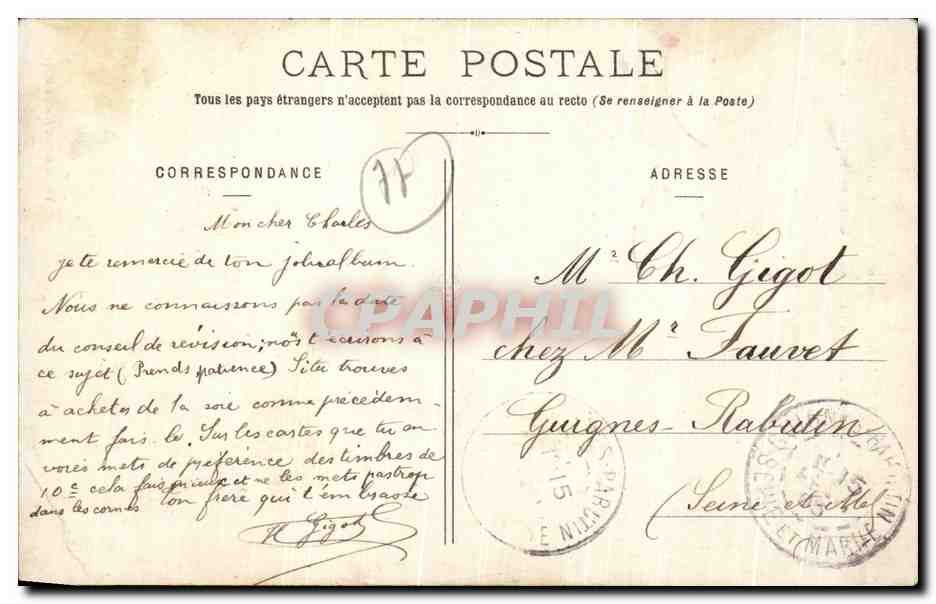 CARTE POSTALE
Tous les pays étrangers n'acceptent pas la correspondance au recto (Se renseigner à la Poste)
CORRESPONDANCE
77
Mon cher Charles
je te remercie de ton joli album.
Nous ne connaissons pas la date
du conseil de révision; nos t'écrirons à
ce sujet (Prends patience) Si tu trouves
à acheter de la soie comme précédem-
ment fais-le. Sur les cartes que tu en-
voies mets de préférence des timbres de
10c cela fais mieux et ne les mets pas trop
dans les cornes ton frère qui t'embrasse
H Gigot
ADRESSE
Mr Ch. Gigot
chez Mr Fauvet
Guignes-Rabutin
(Seine et M
CPAPHIL
S-RABUTIN
15
NE
RABUTIN
SEINE ET MARNE
15